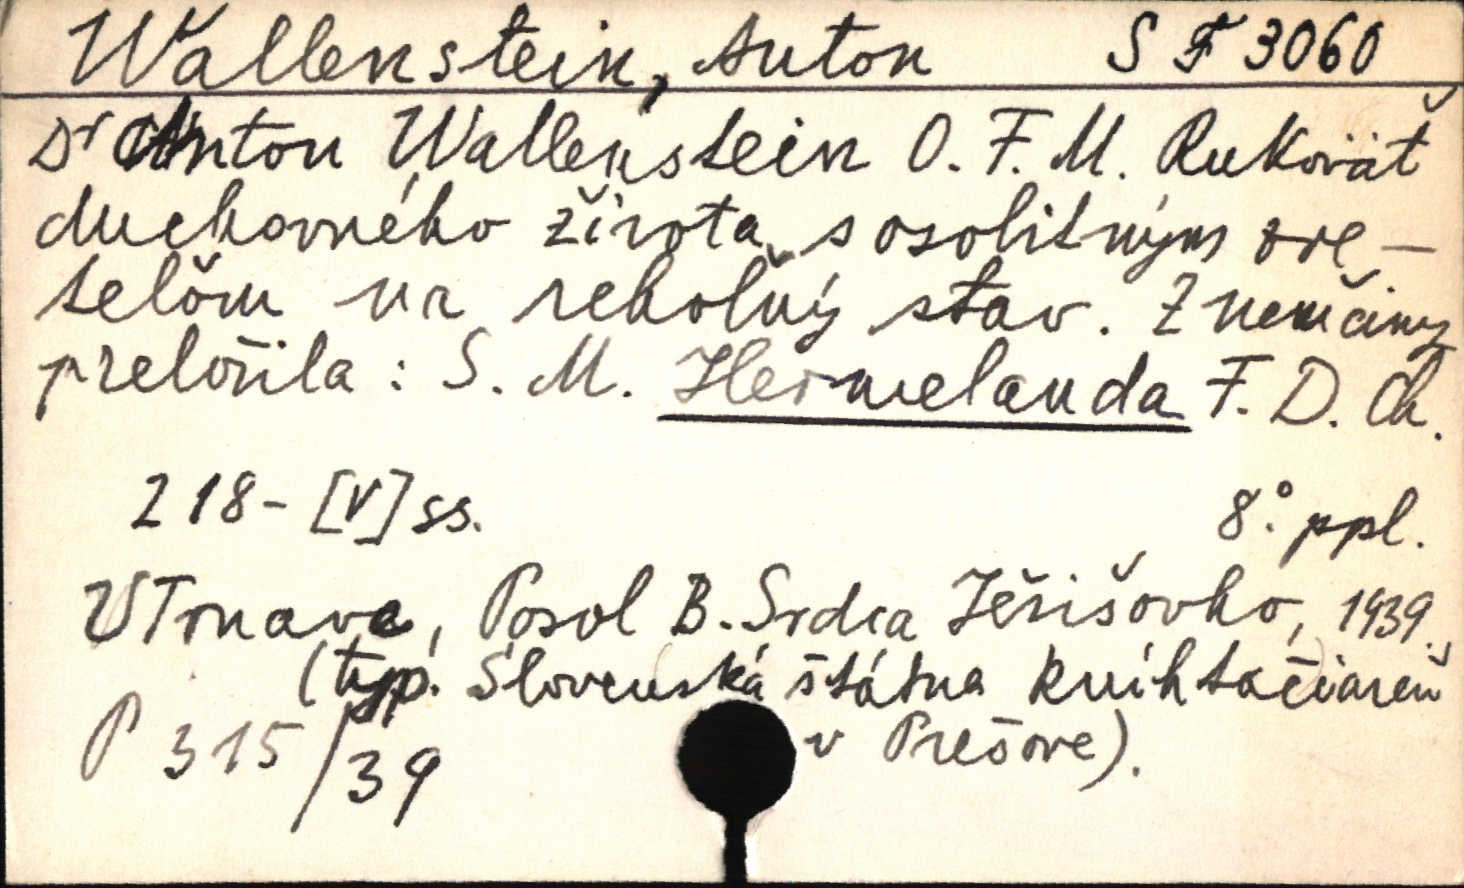 Wallenstein, Anton S F 3060
Dr Anton Wallenstein O. F. M. Rukoväť
duchovného života s osobitným zre-
teľom na rehoľný stav. Z nemčiny
preložila: S. M. Hermelanda F. D. Ch.
218-[V] ss. 8.° ppl.
V Trnave, Posol B. Srdca Ježišovho, 1939.
(typ. Slovenská štátna kníhtačiareň
v Prešove).
P 315/39